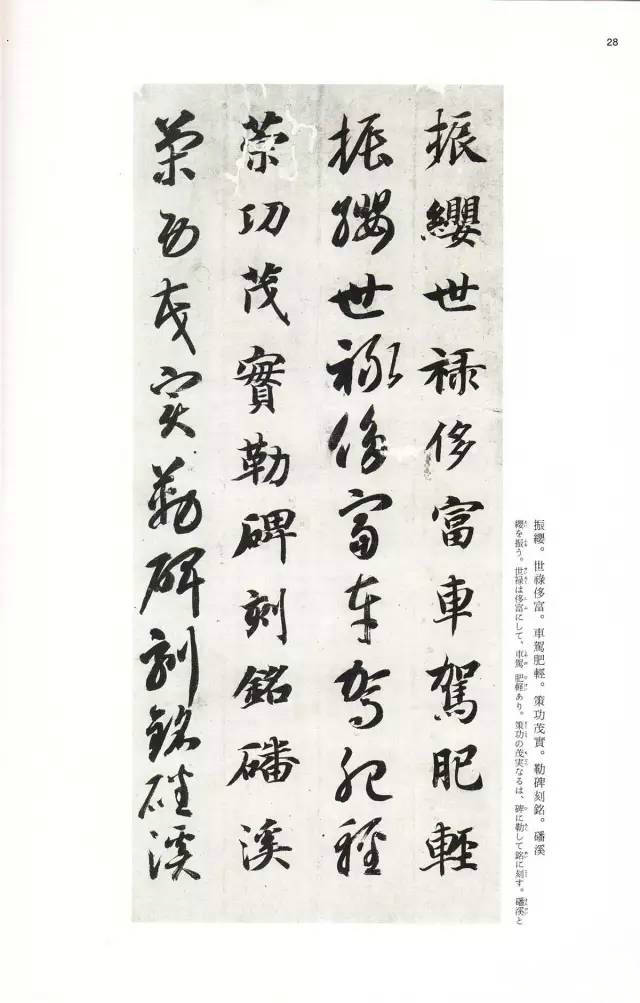 28
振纓。世祿侈富。車駕肥輕。策功茂實。勒碑刻銘。磻溪
纓を振う。世禄は侈富にして、車駕 肥軽あり。策功の茂実なるは、碑に勒して銘に刻す。磻渓と
振纓世祿侈富車駕肥輕
振纓世祿侈富車駕肥輕
策功茂實勒碑刻銘磻溪
策功茂實勒碑刻銘磻溪